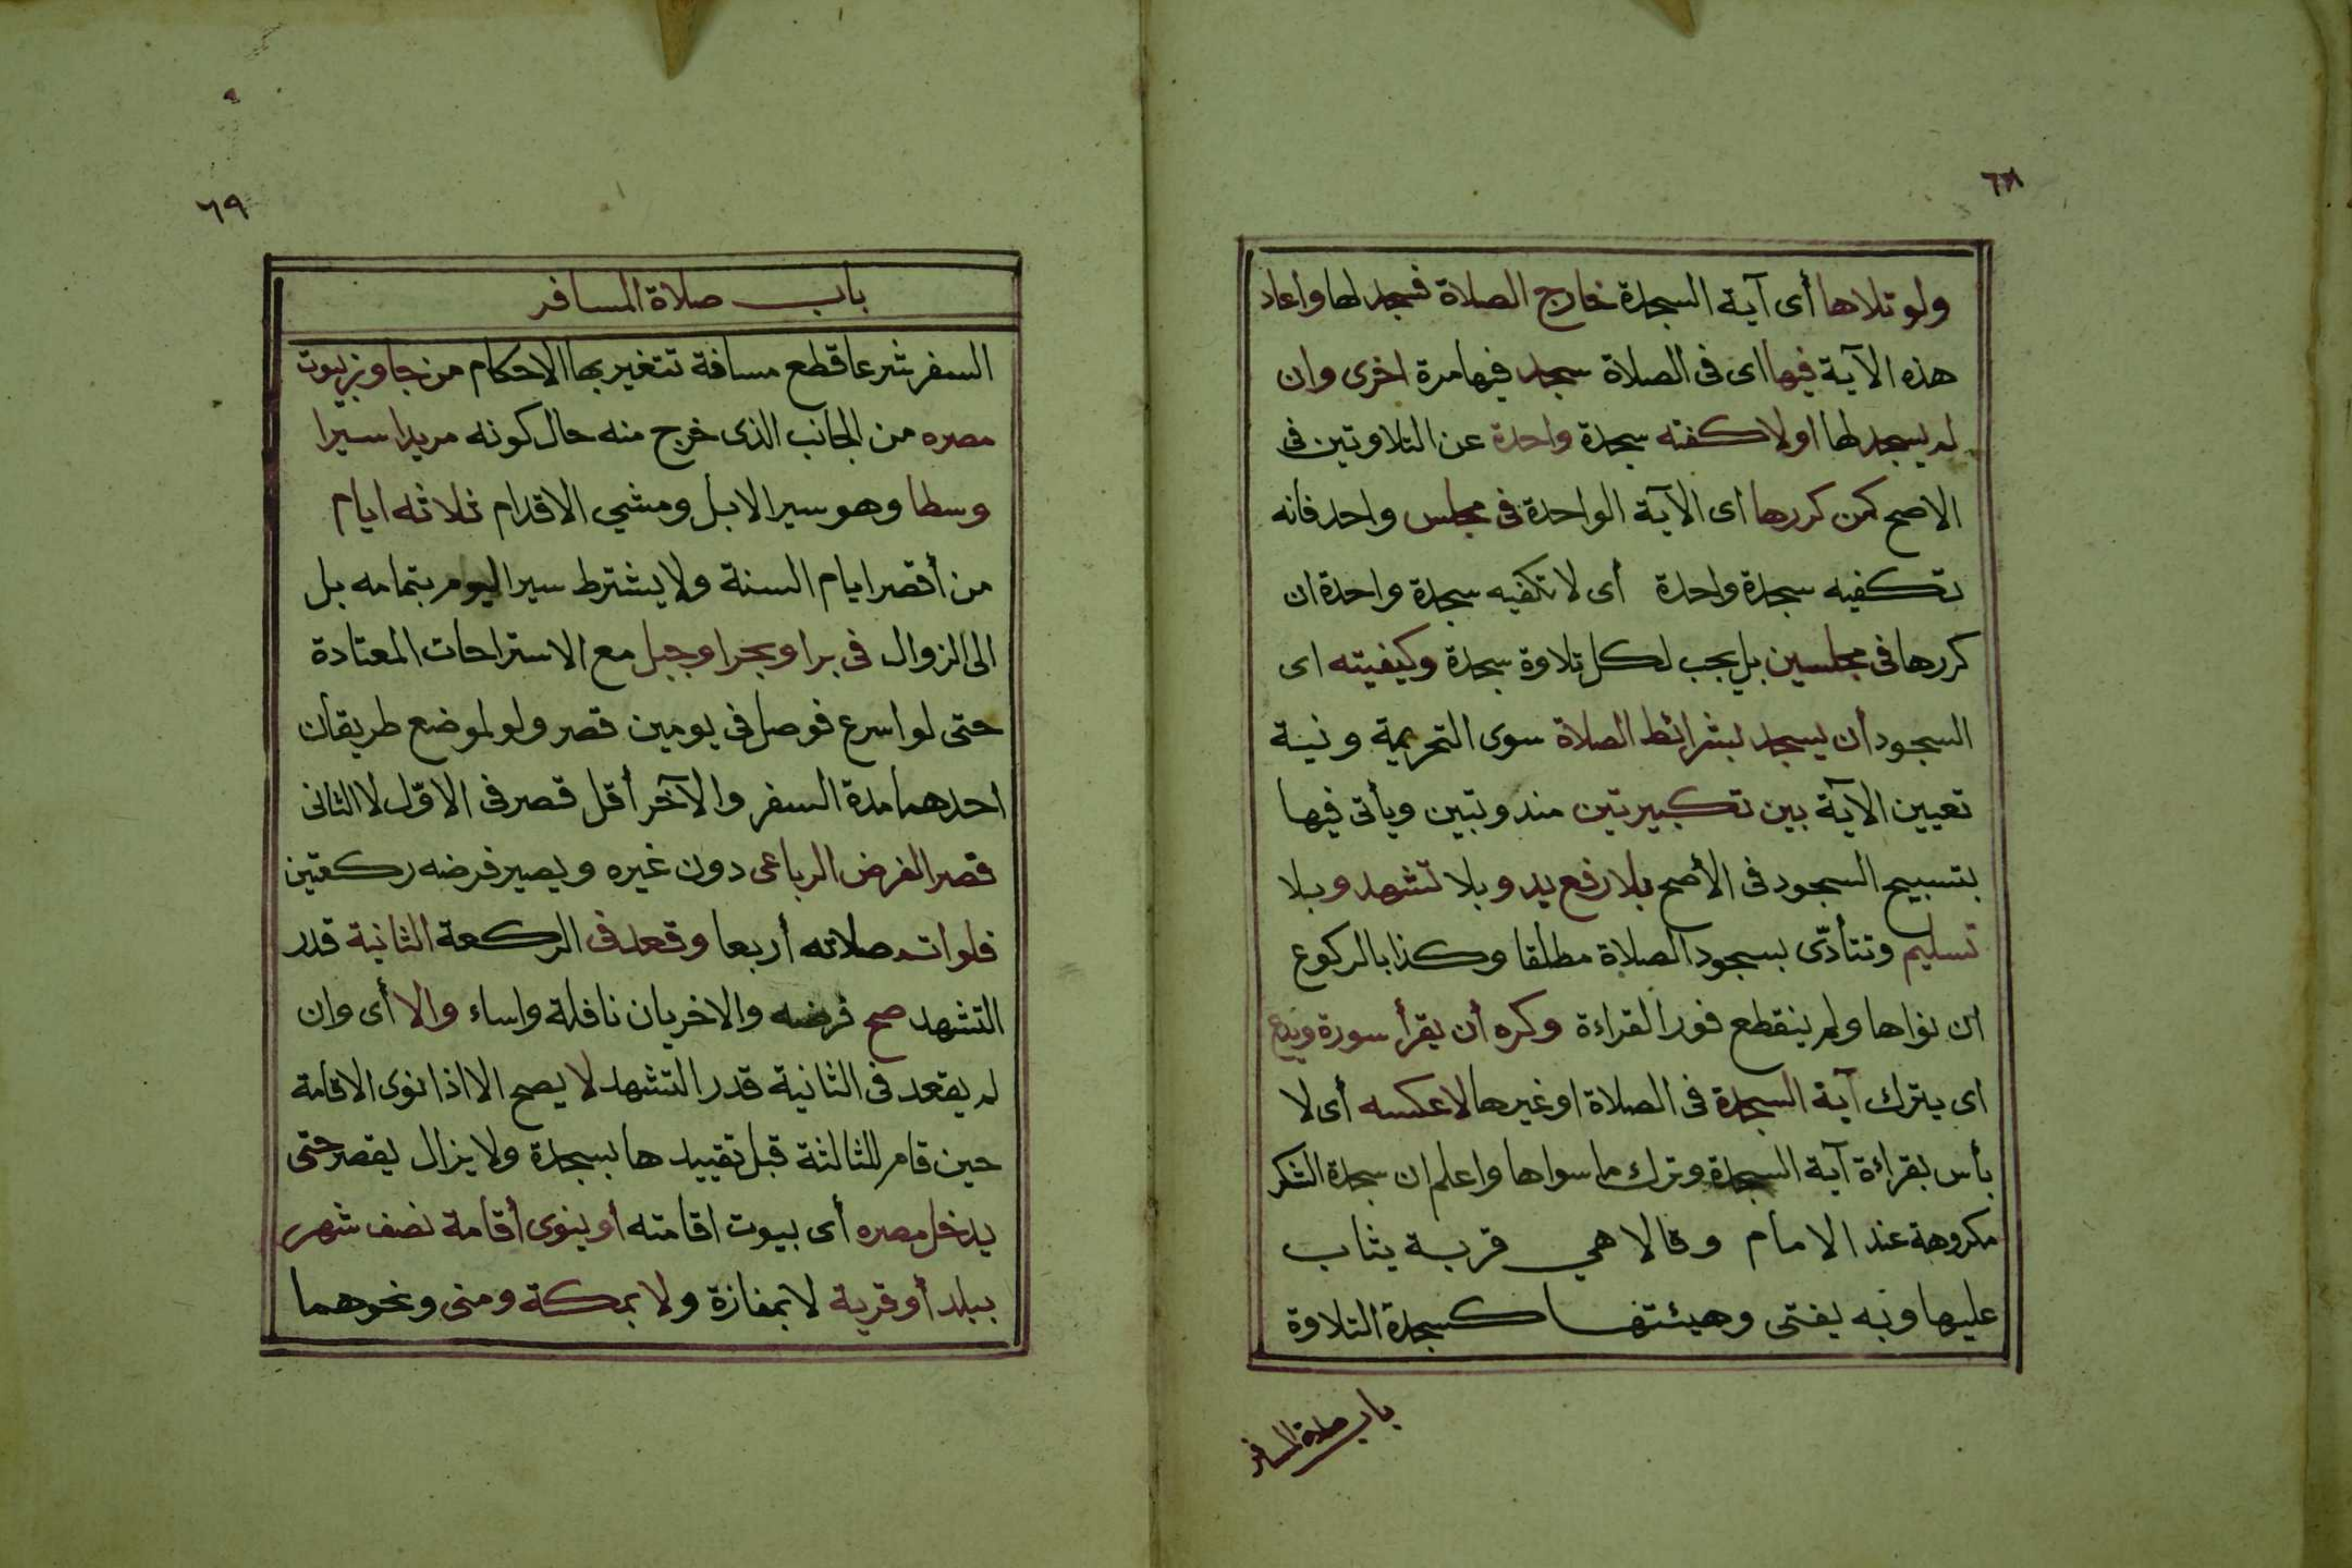 ٦٨
ولو تلاها أى آية السجدة خارج الصلاة فسجد لها واعاد
هذه الآية فيها اى فى الصلاة سجد فيها مرة اخرى وان
لم يسجد لها اولا كفته سجدة واحدة عن التلاوتين فى
الاصح كمن كررها اى الآية الواحدة فى مجلس واحد فانه
تكفيه سجدة واحدة أى لا تكفيه سجدة واحدة ان
كررها فى مجلسين بل يجب لكل تلاوة سجدة وكيفيته اى
السجود أن يسجد بشرائط الصلاة سوى التحريمة ونية
تعيين الآية بين تكبيرتين مندوتبين ويأتى فيها
بتسبيح السجود فى الأصح بلا رفع يد وبلا تشهد وبلا
تسليم وتتأدّى بسجود الصلاة مطلقا وكذا بالركوع
ان نواها ولم ينقطع فور القراءة وكره أن يقرأ سورة ويدع
اى يترك آية السجدة فى الصلاة او غيرها لا عكسه أى لا
بأس بقراءة آية السجدة وترك ما سواها واعلم ان سجدة الشكر
مكروهة عند الامام وقالا هي قربة يثاب
عليها وبه يفتى وهيئتها كسجدة التلاوة
باب صلاة المسافر
٦٩
باب صلاة المسافر
السفر شرعا قطع مسافة تتغير بها الاحكام من جاوز بيوت
مصره من الجانب الذى خرج منه حال كونه مريدا سيرا
وسطا وهو سير الابل ومشي الاقدام ثلاثه ايام
من أقصر ايام السنة ولا يشترط سير اليوم بتمامه بل
الى الزوال فى بر او بحر او جبل مع الاستراحات المعتادة
حتى لو اسرع فوصل فى يومين قصر ولو لموضع طريقان
احدهما مدة السفر والآخر أقل قصر فى الاوّل لا الثانى
قصر الفرض الرباعى دون غيره ويصير فرضه ركعتين
فلو اتم صلاته أربعا وقعد فى الركعة الثانية قدر
التشهد صح فرضه والاخريان نافلة واساء والا أى وان
لم يقعد فى الثانية قدر التشهد لا يصح الا اذا نوى الاقامة
حين قام للثالثة قبل تقييدها بسجدة ولا يزال يقصر حتى
يدخل مصره أى بيوت اقامته أو ينوى أقامة نصف شهر
ببلد أو قرية لا بمفازة ولا بمكة ومنى ونحوهما